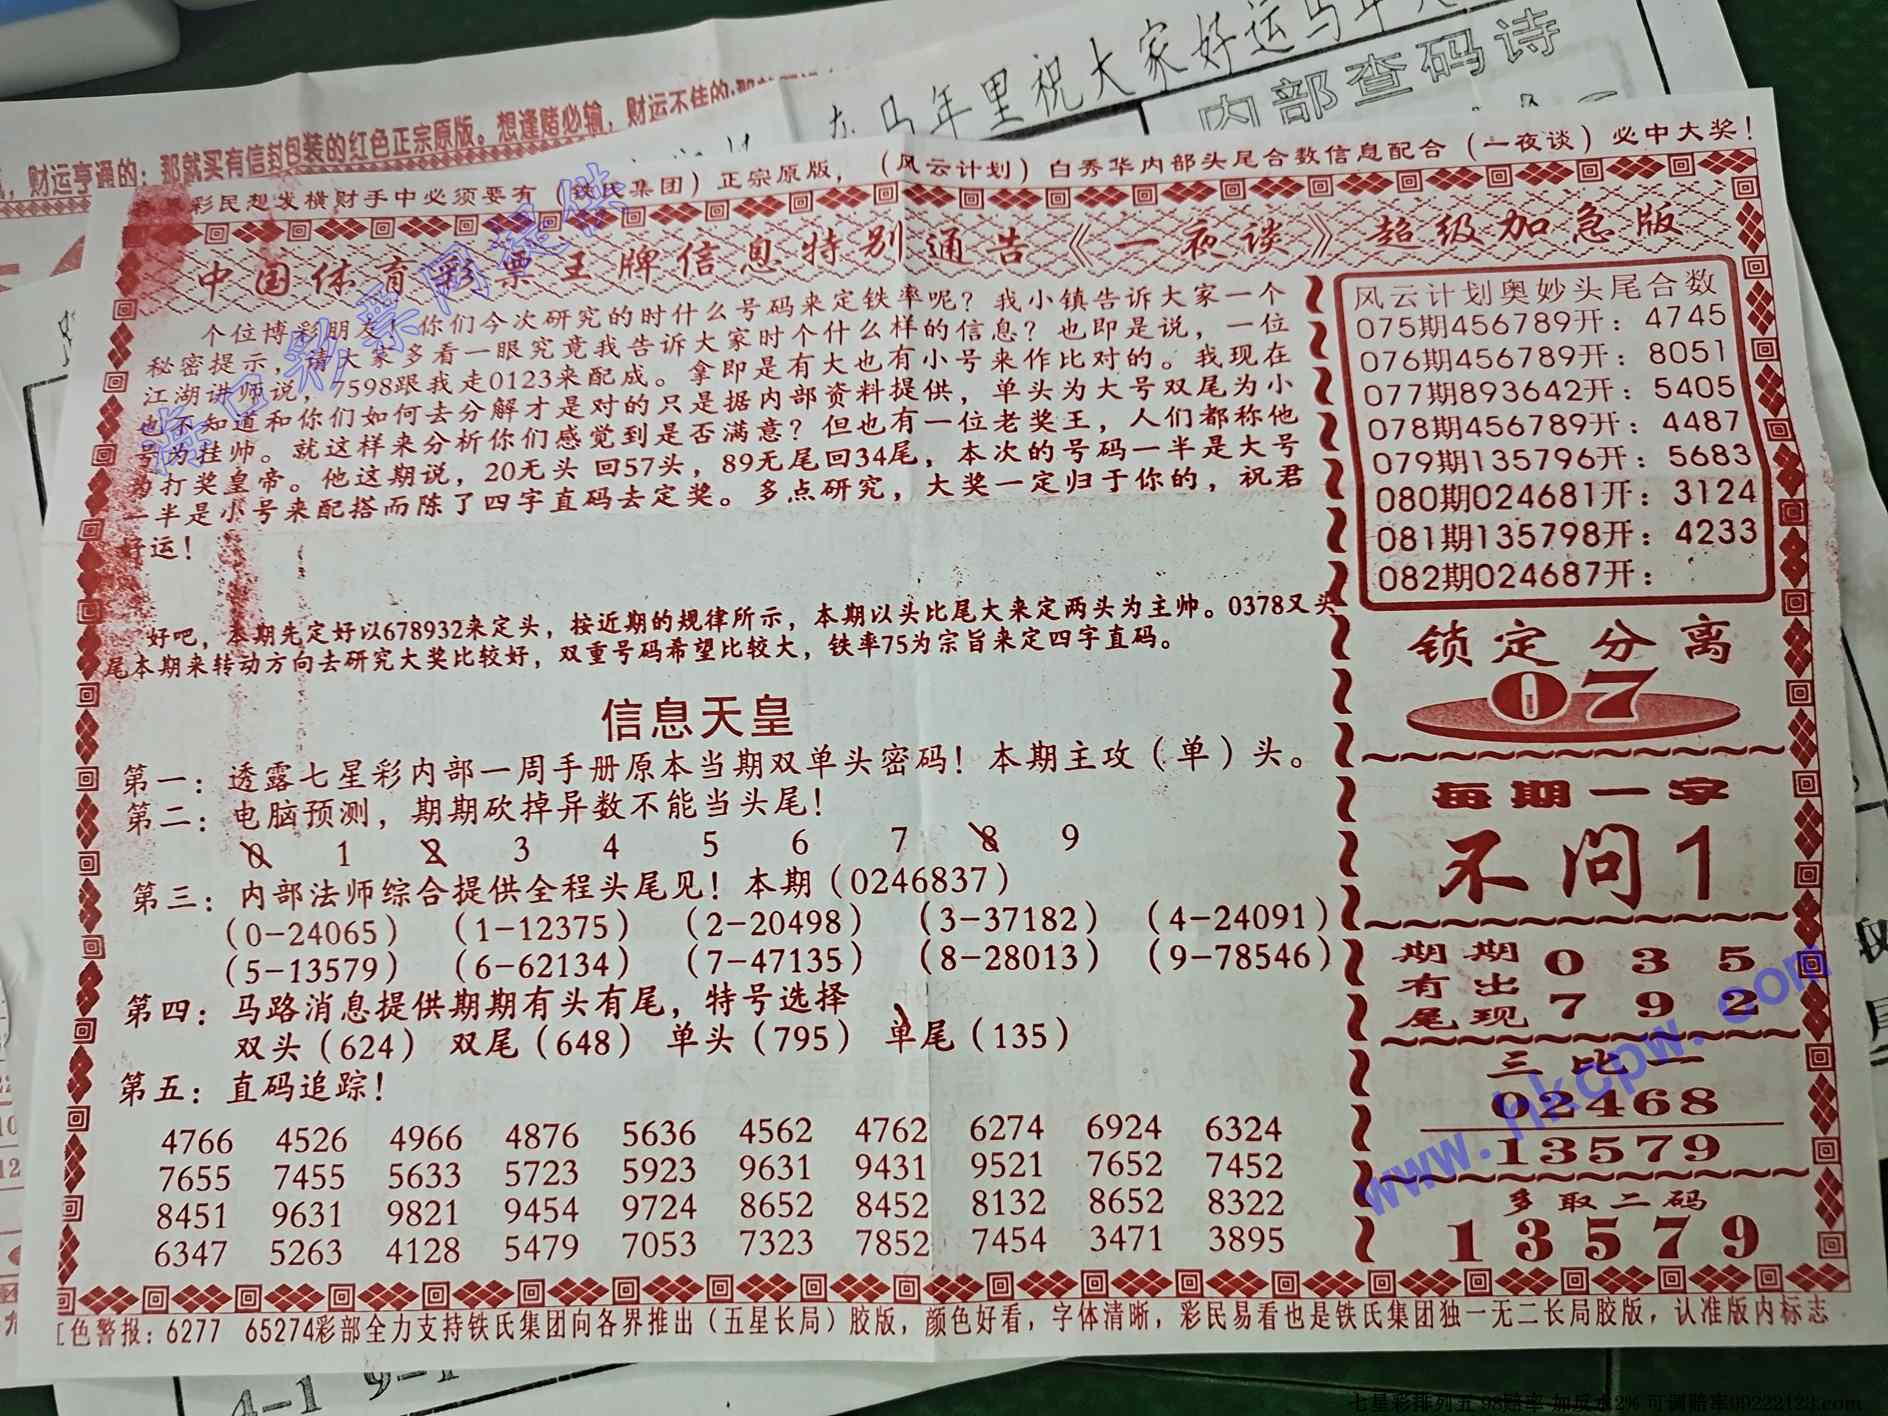 在马年里祝大家好运马年大
内部查码诗
，财运亨通的：那就买有信封包装的红色正宗原版。想逢赌必输，财运不佳的：那
彩民想发横财手中必须要有（铁氏集团）正宗原版，（风云计划）白秀华内部头尾合数信息配合（一夜谈）必中大奖！
中国体育彩票王牌信息特别通告《一夜谈》超级加急版
个位博彩朋友！你们今次研究的时什么号码来定铁率呢？我小镇告诉大家一个
秘密提示，请大家多看一眼究竟我告诉大家时个什么样的信息？也即是说，一位
江湖讲师说，7598跟我走0123来配成。拿即是有大也有小号来作比对的。我现在
也不知道和你们如何去分解才是对的只是据内部资料提供，单头为大号双尾为小
号为挂帅。就这样来分析你们感觉到是否满意？但也有一位老奖王，人们都称他
为打奖皇帝。他这期说，20无头 回57头，89无尾回34尾，本次的号码一半是大号
一半是小号来配搭而陈了四字直码去定奖。多点研究，大奖一定归于你的，祝君
好运！
好吧，本期先定好以678932来定头，按近期的规律所示，本期以头比尾大来定两头为主帅。0378又头
尾本期来转动方向去研究大奖比较好，双重号码希望比较大，铁率75为宗旨来定四字直码。
信息天皇
第一：透露七星彩内部一周手册原本当期双单头密码！本期主攻（单）头。
第二：电脑预测，期期砍掉异数不能当头尾！
0 1 2 3 4 5 6 7 8 9
第三：内部法师综合提供全程头尾见！本期（0246837）
（0-24065） （1-12375） （2-20498） （3-37182） （4-24091）
（5-13579） （6-62134） （7-47135） （8-28013） （9-78546）
第四：马路消息提供期期有头有尾，特号选择
双头（624） 双尾（648） 单头（795） 单尾（135）
第五：直码追踪！
4766 4526 4966 4876 5636 4562 4762 6274 6924 6324
7655 7455 5633 5723 5923 9631 9431 9521 7652 7452
8451 9631 9821 9454 9724 8652 8452 8132 8652 8322
6347 5263 4128 5479 7053 7323 7852 7454 3471 3895
风云计划奥妙头尾合数
075期456789开：4745
076期456789开：8051
077期893642开：5405
078期456789开：4487
079期135796开：5683
080期024681开：3124
081期135798开：4233
082期024687开：
锁定分离
07
每期一字
不问1
期期 0 3 5
有出
尾现 7 9 2
三比一
02468
13579
多取二码
13579
红色警报：6277 65274彩部全力支持铁氏集团向各界推出（五星长局）胶版，颜色好看，字体清晰，彩民易看也是铁氏集团独一无二长局胶版，认准版内标志
4-1 9-1
www.hkcpw.com
七星彩排列五 98赔率 加反水2% 可调赔率09222123.com